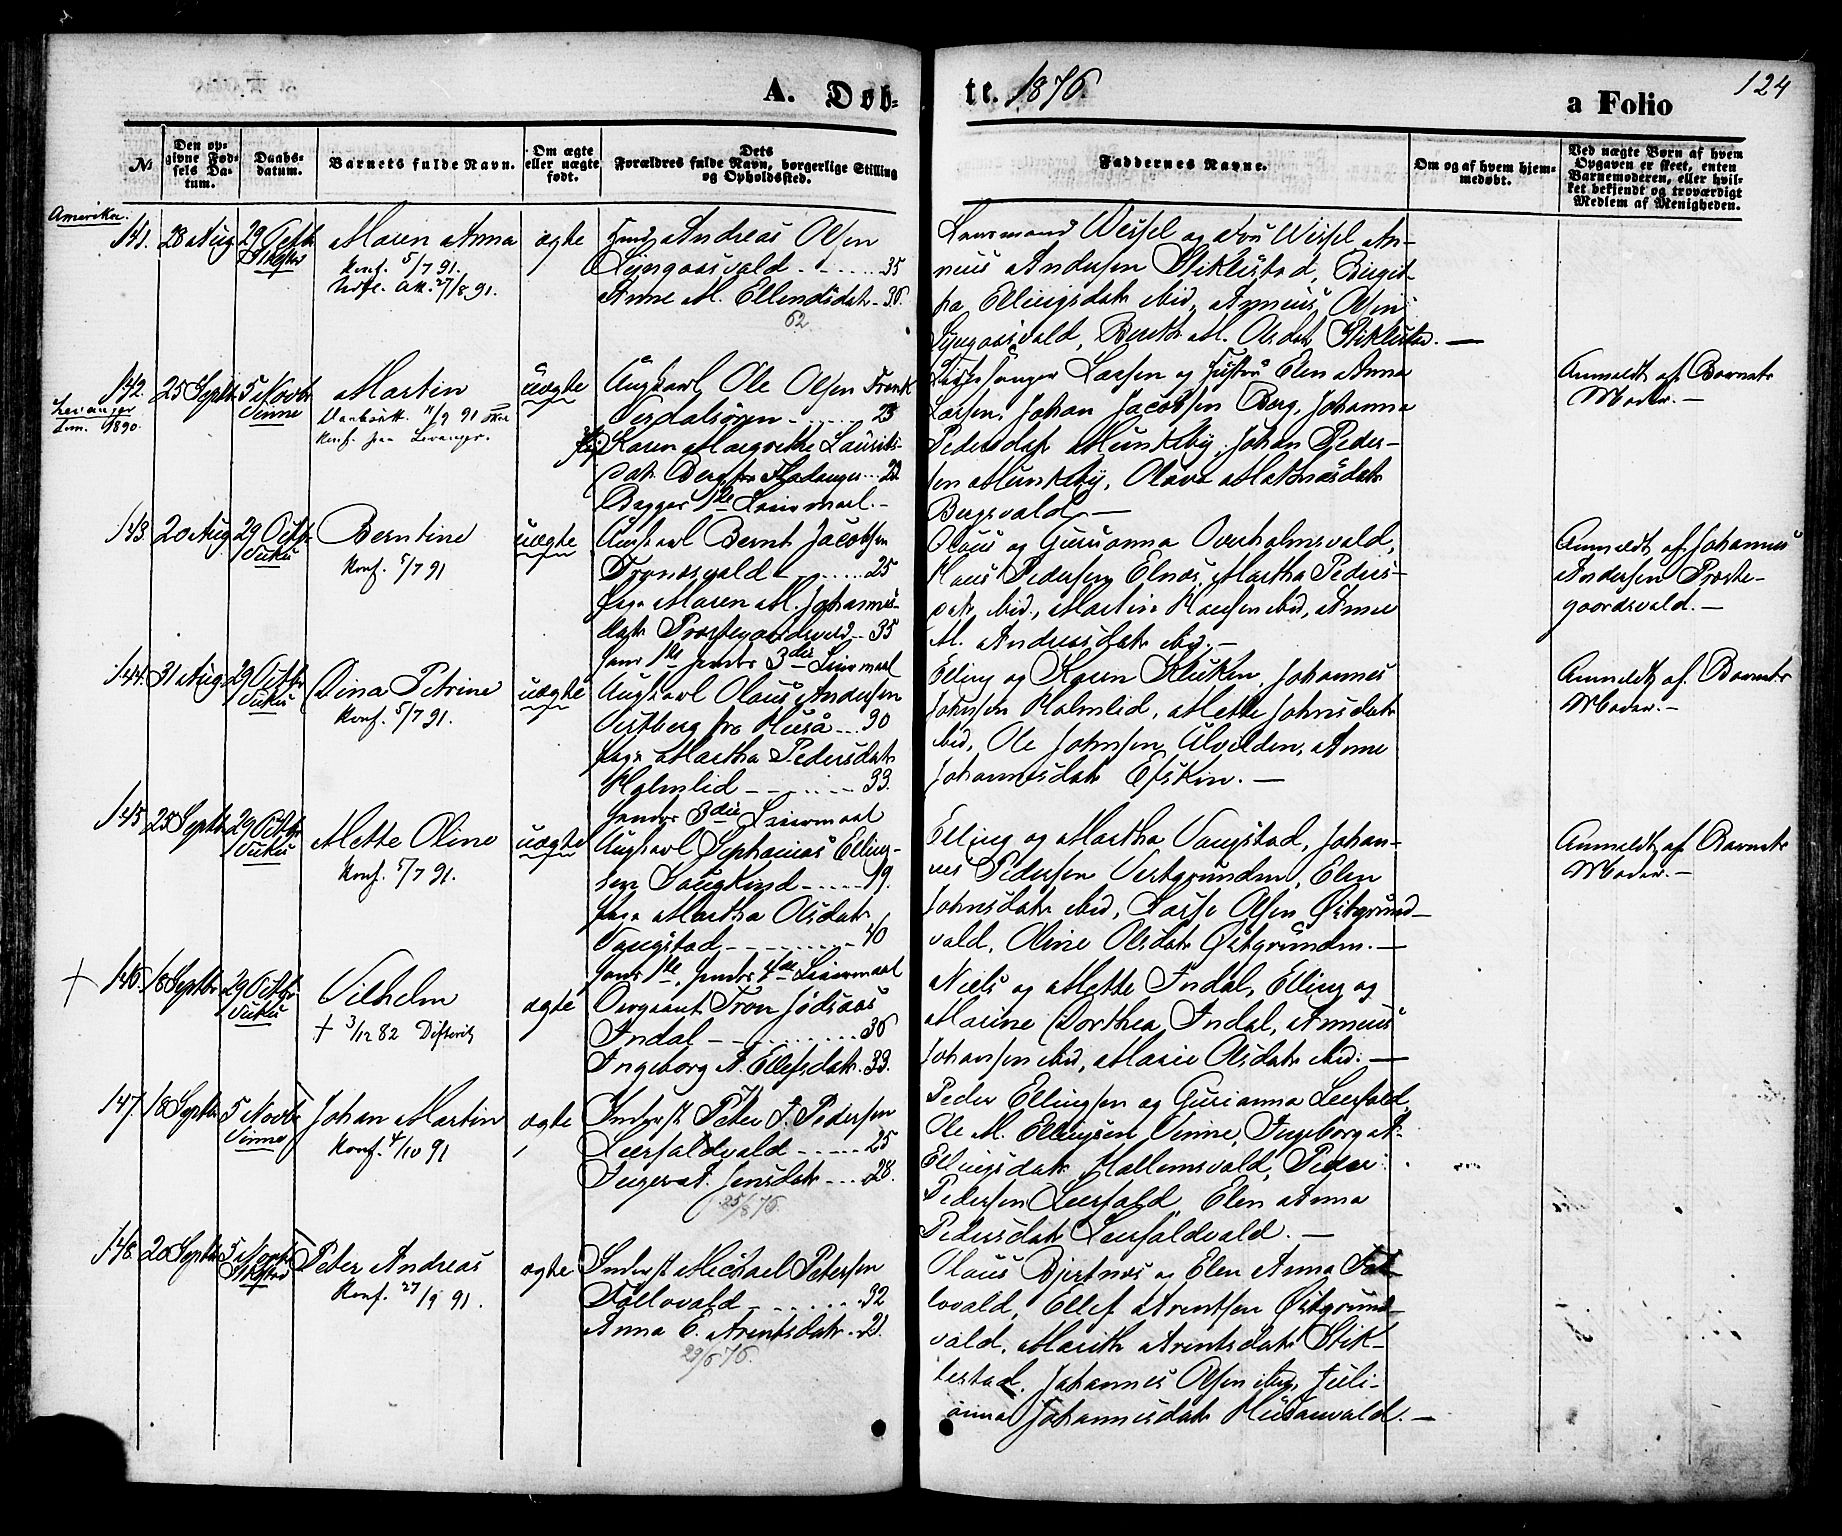 A. Døb-
te. 1876.
124
a Folio
№
Den op-
givne Fød-
sels Da-
tum.
Daabs-
datum.
Barnets fulde Navn.
Om ægte
eller uægte
født.
Dets
Forældres fulde Navn, borgerlige Stilling
og Opholdssted.
Faddernes Navne.
Om og af hvem hjem-
medøbt.
Ved uægte Børn af hvem
Opgaven er skeet, enten
Barnemoderen, eller hvil-
ket bekjendt og troværdigt
Medlem af Menigheden.
Amerika.
141. 28 Aug 29 Octb
Maren Anna
Konf. 5/7 91.
Udfl. Am. 27/8 91.
ægte
Andreas Olsen
35
Anne M. Ellendsdatr 36
62
Lensmand Wessel og Fru Wessel, An-
neus Andersen Stiklestad, Birgit-
ha Ellingsdatr ibid, Anneus Olsen
Bereth M. Olsdatr Stiklestad. —
142. 25 Septb 5 Novbr
Vinne
Levanger
1890.
Martin
11/9 91
Konf. paa Levanger.
uægte
Ungkarl Ole Olsen
Verdalsøren 23
Karen Margrethe Laurits-
datr Berg fra 22
Begges 1ste Leiermaal. -
Kirkesanger Larsen og Hustru Elen Anna
Larsen, Johan Jacobsen Berg, Johanna
Pedersdatr Munkeby, Johan Peder-
sen Munkeby, Olava
Bergsvald. —
Anmeldt af Barnets
Moder. —
143 20 Aug 29 Octb.
Vuku
Berntine
Konf. 5/7 91
uægte
Ungkarl Bernt Jacobsen
25
Pige Maren M. Johannes-
datr Prestegaardsvald 35
hans 1ste hendes 3die Leiermaal
Olaus og Gurianna Overholmsvald,
Hans Pedersen Elnes, Martha Peders-
datr ibid., Martin Hansen ibid, Anne
M. Andreasdatr ibid. —
Anmeldt af Johannes
Andersen Preste-
gaardsvald. —
144. 31 Aug 29 Octbr
Vuku
Dina Petrine
Konf. 5/7 91.
uægte
Ungkarl Olaus Andersen
30
Pige Martha Pedersdatr
Holmlid 33.
hendes 3die Leiermaal
Elling og Karen Kluken, Johannes
Johnsen Holmlid, Mette Johnsdatr
ibid, Ole Johnsen Ulvilden, Anne
Johannesdatr —
Anmeldt af Barnets
Moder. —
145 25 Septb 29 Octbr
Vuku
Mette Oline
Konf. 5/7 91.
uægte
Ungkarl Sephanias Elling-
sen 19.
Pige Martha Olsdatr
Vangstad 40
hans 1ste, hendes 4de Leiermaal
Elling og Martha Vangstad, Johan-
nes Pedersen Vestgrunden, Elen
Johnsdatr ibid, Lasse Olsen Østgrund-
vald, Oline Olsdatr Østgrunden. —
Anmeldt af Barnets
Moder. —
† 146. 18 Septbr 29 Octbr
Vuku
Vilhelm
† 3/12 82 Difterit
ægte
Sergeant Tron
Indal 36
Ingeborg A. Ellefsdatr. 33.
Niels og Mette Indal, Elling og
Marine Dorthea Indal, Anneus
Johansen ibid, Marie Olsdatr ibid. —
147 18 Septb 5 Novbr
Vinne
Johan Martin
Konf. 4/10 91
ægte
Inderst Peter J. Pedersen
Leerfaldvald 25
Jensdatr 28.
25/8 76.
Peder Ellingsen og Gurianna Leerfald,
Ole M. Ellingsen Vinne, Ingeborg A.
Ellingsdatr Hallemsvald, Peder
Pedersen Leerfald, Elen Anna
Pedersdatr Leerfaldvald. —
148 20 Septbr 5 Novbr
Peter Andreas
Konf. 27/9 91.
ægte
Inderst Michael Petersen
32
Anna E. Arentsdatr. 21.
29/6 76.
Olaus Bjertnes og Elen Anna
Ellef Arentsen Østgrund-
vald, Marith Arentsdatr Stik-
lestad, Johannes Olsen Juli-
anna Johannesdatr —